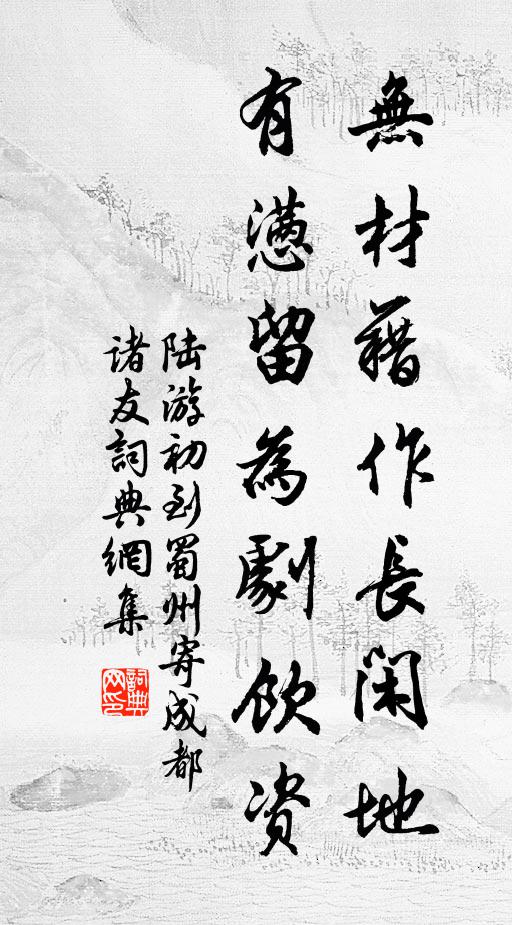 無材藉作長閑地
有懣留為劇飲資
陆游初到蜀州寄成都
诸友詞典網集
詞典
网印